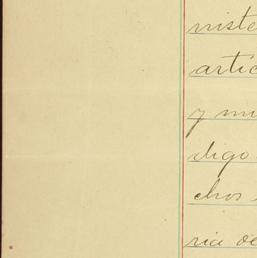 niste
artic
y mu
digo
chos
ria de